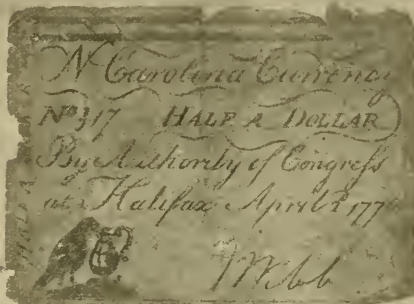 N Carolina Currency
No 317 HALF A DOLLAR
By Authority of Congress
at Halifax April 2 177
J Webb
HALF A